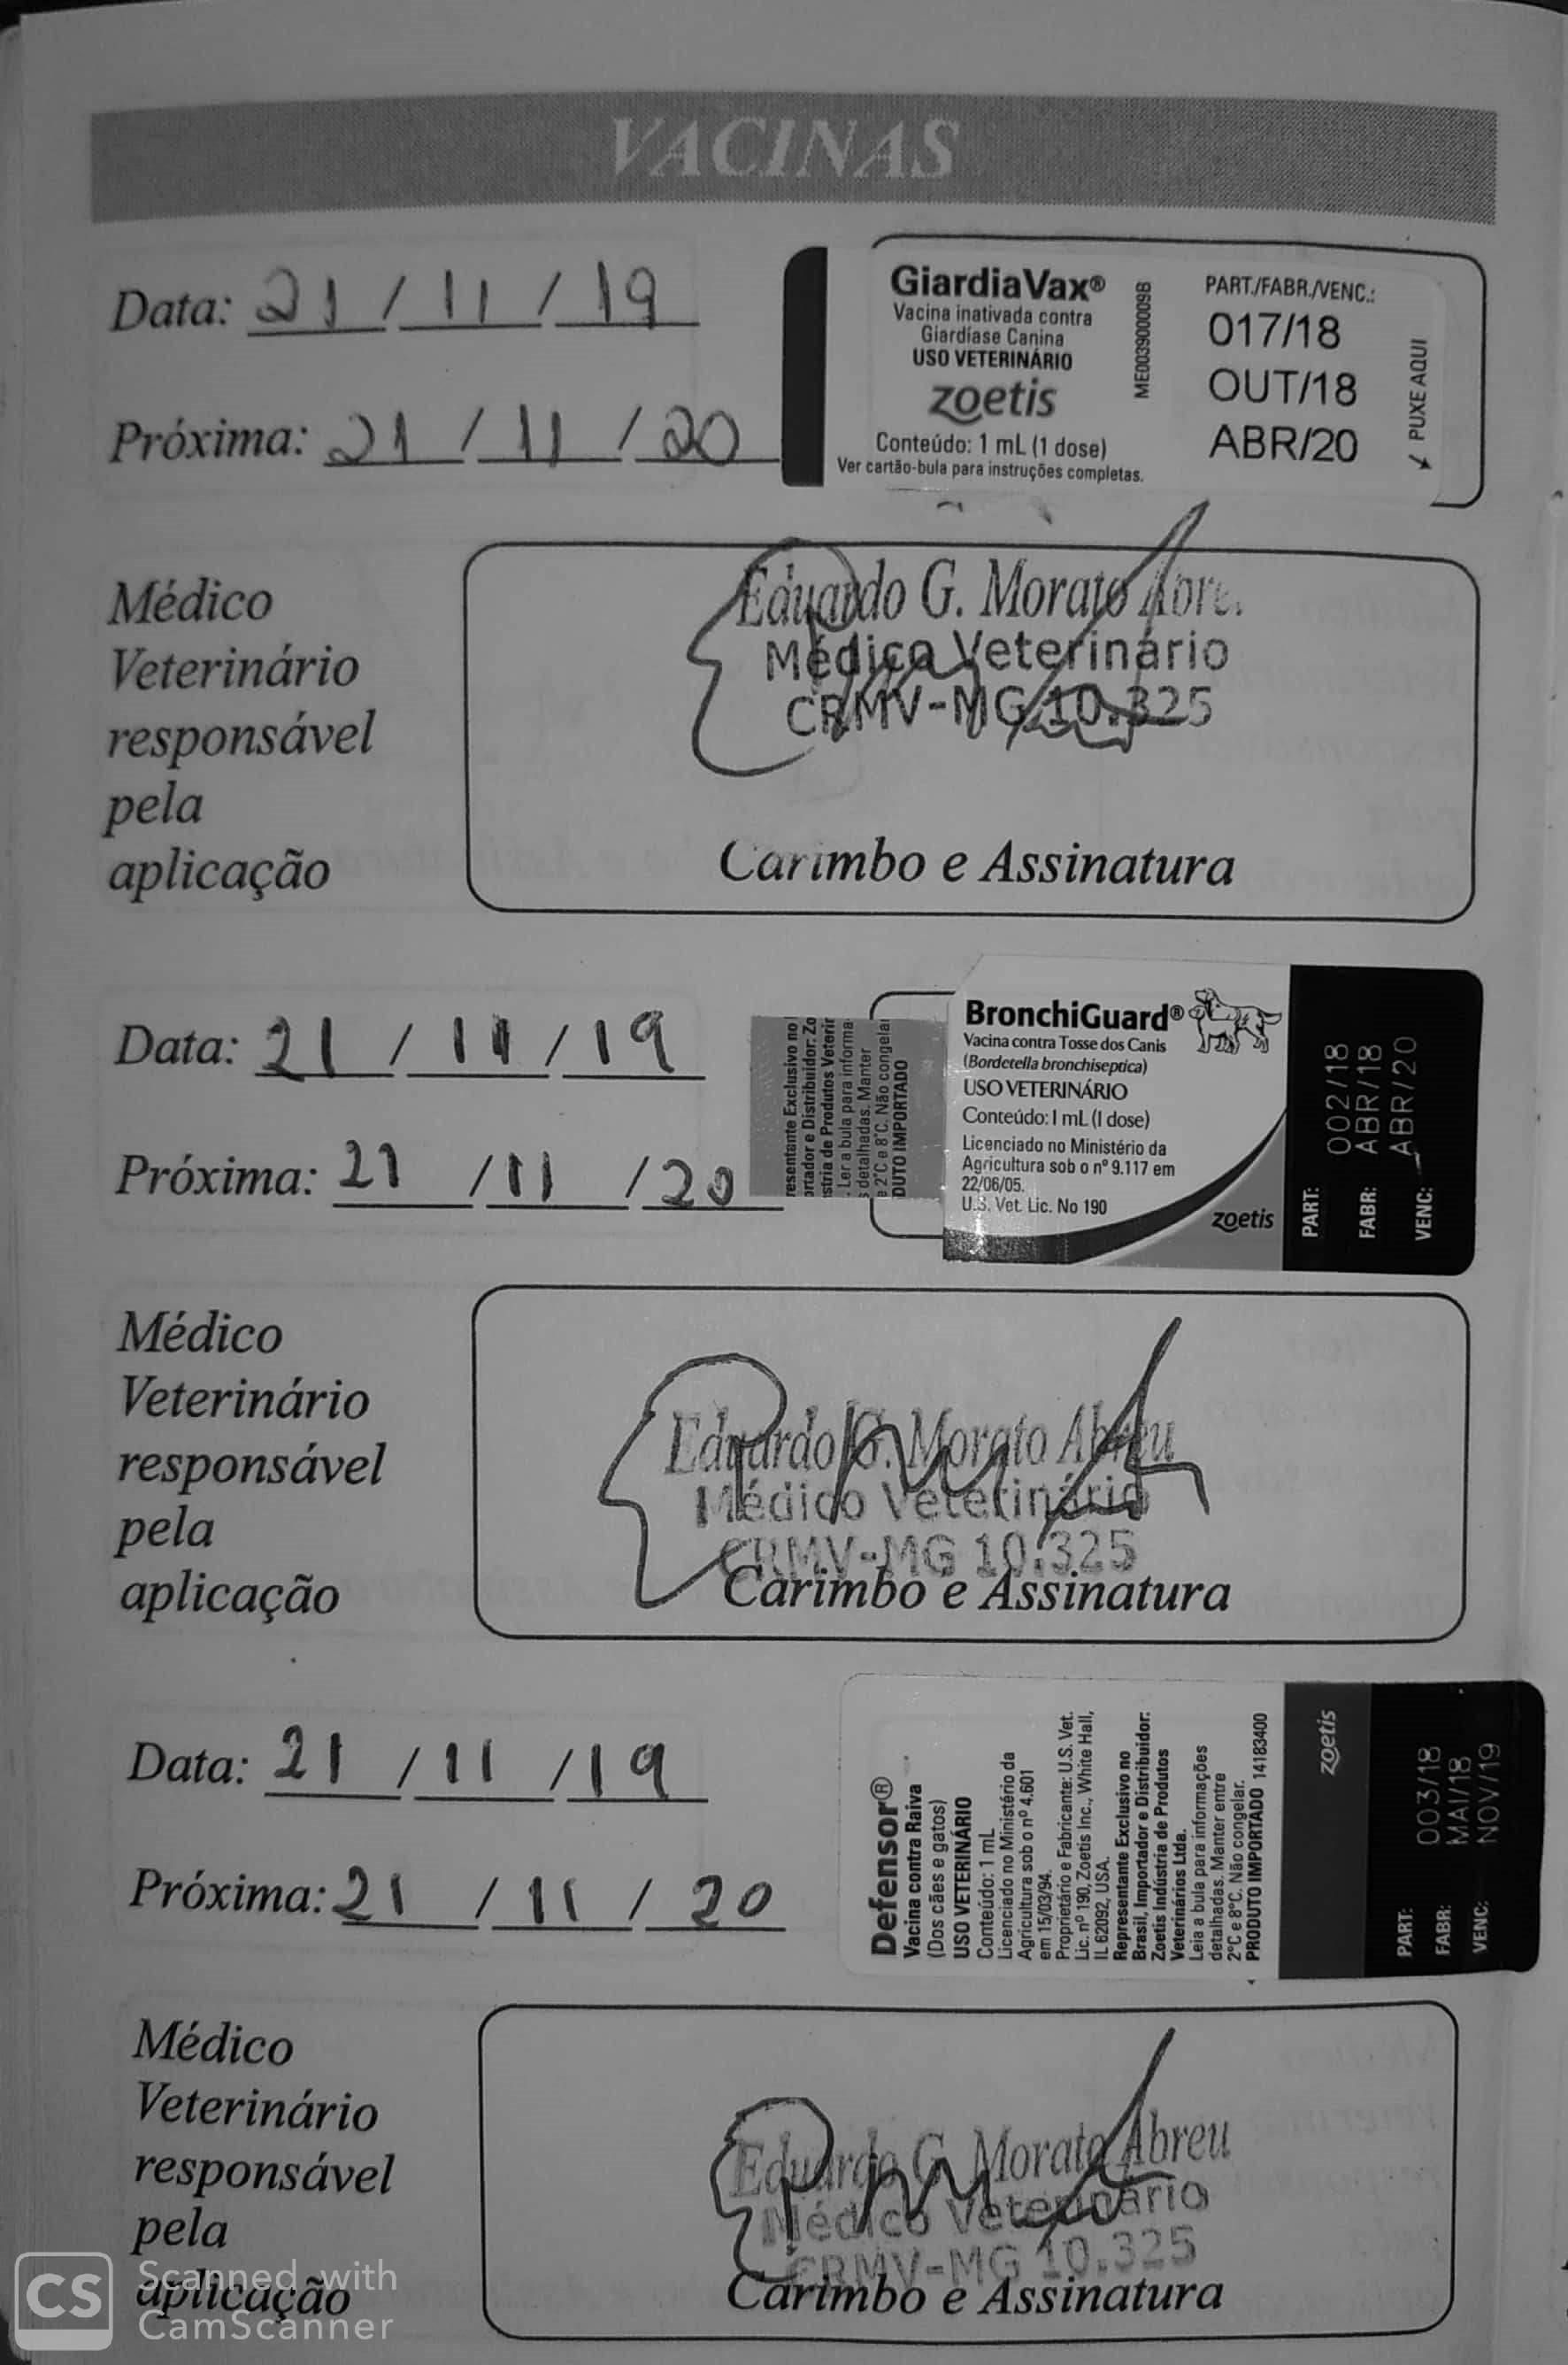 VACINAS
Data: 21 / 11 / 19
Próxima: 21 / 11 / 20
GiardiaVax®
Vacina inativada contra
Giardíase Canina
USO VETERINÁRIO
zoetis
Conteúdo: 1 mL (1 dose)
Ver cartão-bula para instruções completas.
ME00390009B
PART./FABR./VENC.:
017/18
OUT/18
ABR/20
PUXE AQUI
Médico
Veterinário
responsável
pela
aplicação
Eduardo G. Morato Abre
Médico Veterinário
CRMV-MG 10.325
Carimbo e Assinatura
Data: 21 / 11 / 19
Próxima: 21 / 11 / 20
resentante Exclusivo no
ortador e Distribuidor: Zo
stria de Produtos Veterir
. Ler a bula para informa
s detalhadas. Manter
e 2°C e 8°C. Não congelar
DUTO IMPORTADO
BronchiGuard®
Vacina contra Tosse dos Canis
(Bordetella bronchiseptica)
USO VETERINÁRIO
Conteúdo: 1 mL (1 dose)
Licenciado no Ministério da
Agricultura sob o nº 9.117 em
22/06/05.
U.S. Vet. Lic. No 190
zoetis
PART: 002/18
FABR: ABR/18
VENC: ABR/20
Médico
Veterinário
responsável
pela
aplicação
Eduardo G. Morato Abreu
Médico Veterinário
CRMV-MG 10.325
Carimbo e Assinatura
Data: 21 / 11 / 19
Próxima: 21 / 11 / 20
Defensor®
Vacina contra Raiva
(Dos cães e gatos)
USO VETERINÁRIO
Conteúdo: 1 mL
Licenciado no Ministério da
Agricultura sob o nº 4.601
em 15/03/94.
Proprietário e Fabricante: U.S. Vet.
Lic. nº 190, Zoetis Inc., White Hall,
IL 62092, USA.
Representante Exclusivo no
Brasil, Importador e Distribuidor:
Zoetis Indústria de Produtos
Veterinários Ltda.
Leia a bula para informações
detalhadas. Manter entre
2°C e 8°C. Não congelar.
PRODUTO IMPORTADO 14183400
zoetis
PART: 003/18
FABR: MAI/18
VENC: NOV/19
Médico
Veterinário
responsável
pela
aplicação
Eduardo G. Morato Abreu
Médico Veterinário
CRMV-MG 10.325
Carimbo e Assinatura
CS Scanned with
CamScanner